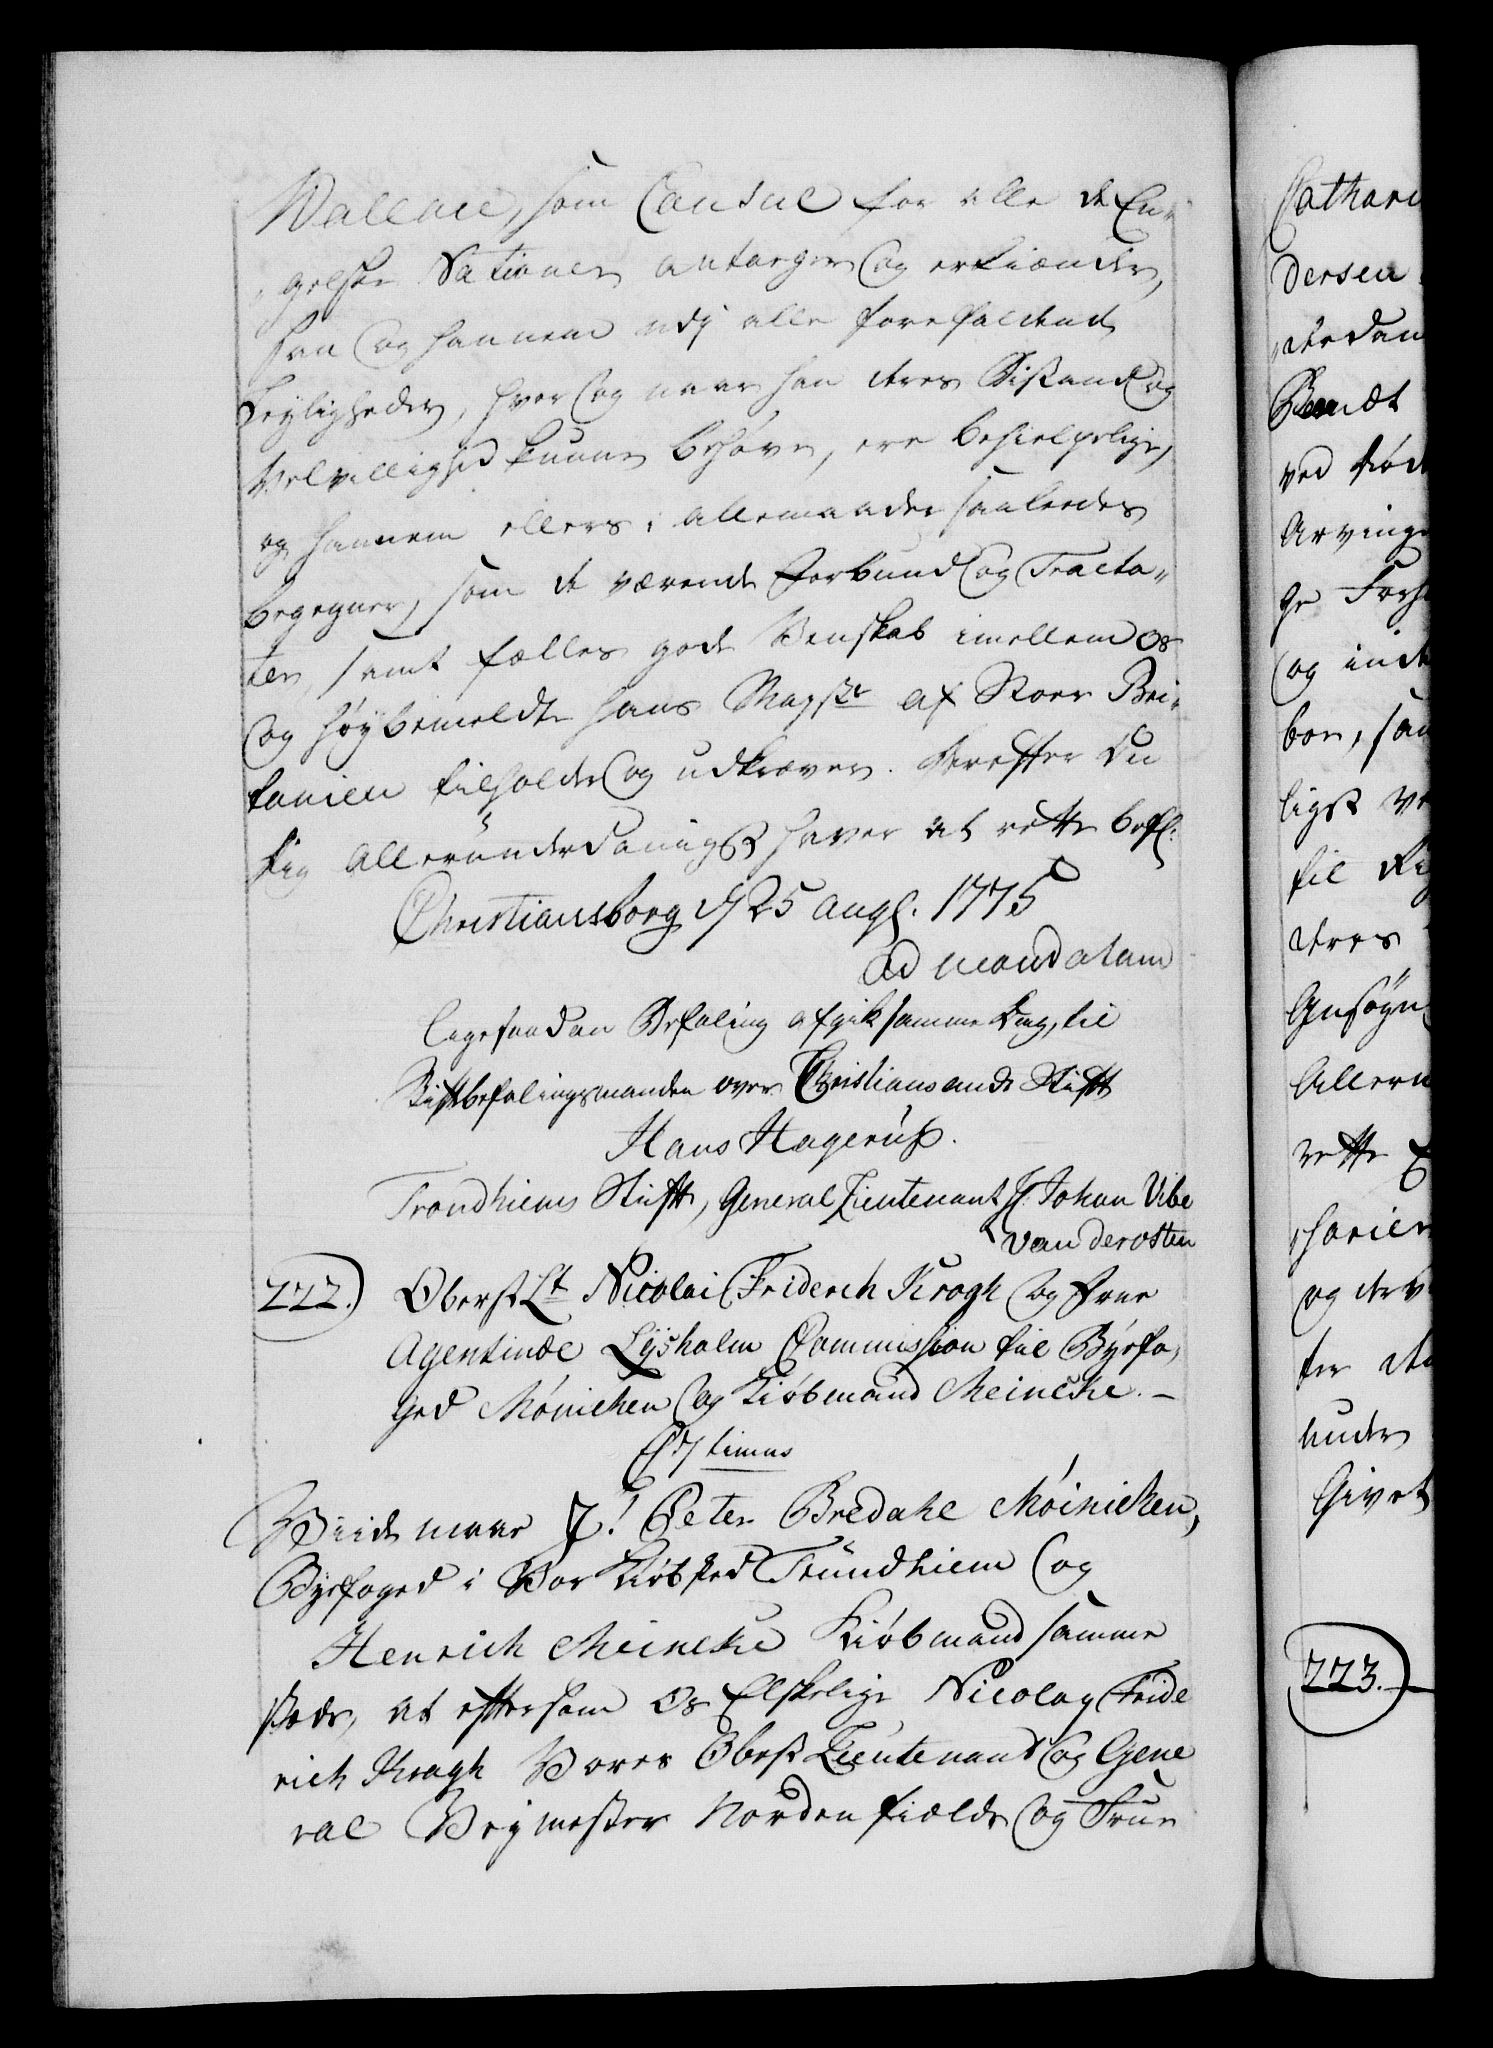 Wallace, som Consul for alle de En-
gelske Nationer antager og erkiænder,
saa og hannem udj alle forefaldende
Leyligheder, hvor og naar han deres Bistand og
Velvillighed kunne behøve, ere behielpelige,
og hannem ellers i allemaader saaledes
begegner, som de værende Forbund og Tracta-
ter, samt fælles gode Venskab imellem Os
og høybemeldte hans Mayst. af Store Bri-
tanien tilholder og udkræver. Derefter Du
dig allerunderdanigst haver at rette. befl.
Christiansborg d 25 Augs. 1775
ad mandatum
ligesaadan Befaling afgik samme Dag, til
Stiftbefalingsmanden over Christiansands Stift
Hans Hagerup.
Trondhiems Stift, General Lieutenant H. Johan Vibe
van der Osten
222.) Oberst Lt Nicolai Friderich Krogh og Frue
Agentinde Lysholm Commission til Byefo-
ged Mönichen og Kiøbmand Meincke. –
C 7timus
Viide maae J! Peter Bredahl Möinichen,
Byefoged i Vor Kiøbsted Trundhiem og
Henrich Meincke Kiøbmand samme
steds, at eftersom Os Elskelige Nicolay Fride
rich Krogh Vores Oberst Lieutenant og Gene
ral Veymester Nordenfields og Frue
Cathari
dersen
Berndt
ved
Arvinge
ge
og
boe, saa
ligst
til
deres
Ansøgn
Allern
rette
og
ter
under
Givet
223.